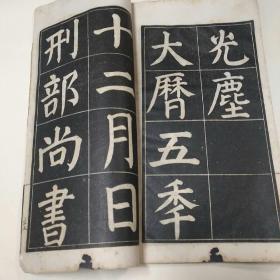 光塵
大曆五年
十二月日
刑部尚書